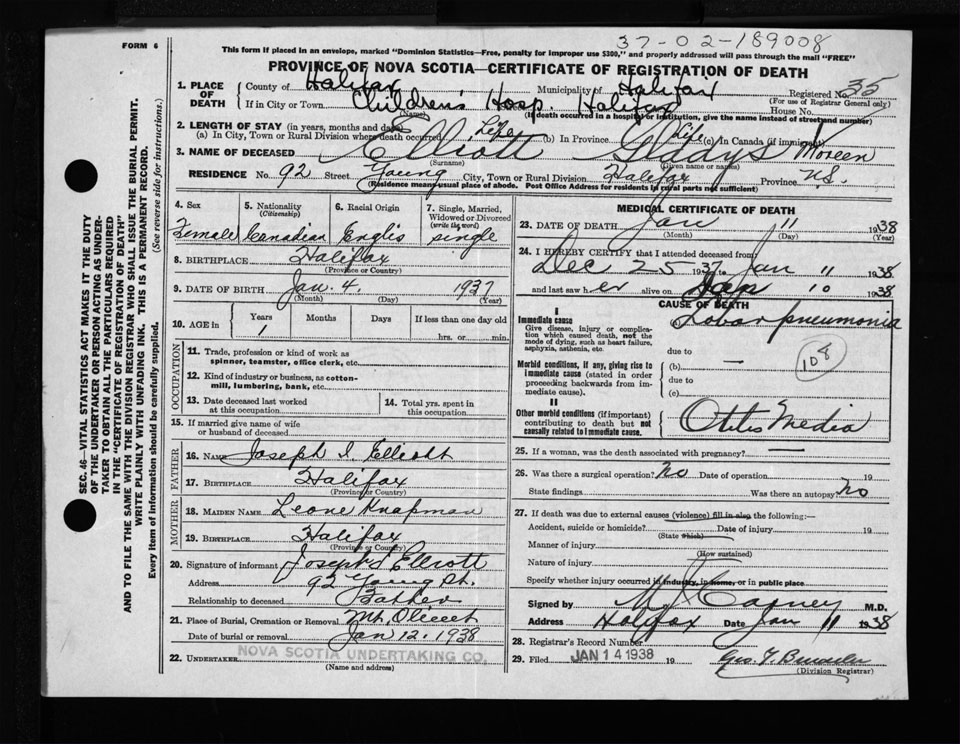 37-02-189008
FORM 6
This form if placed in an envelope, marked "Dominion Statistics—Free, penalty for improper use $300," and properly addressed will pass through the mail "FREE"
PROVINCE OF NOVA SCOTIA—CERTIFICATE OF REGISTRATION OF DEATH
1. PLACE OF DEATH County of Halifax Municipality of Halifax Registered No. 35
(For use of Registrar General only)
If in City or Town Children's Hosp. Halifax House No.
(Name) (If death occurred in a hospital or institution, give the name instead of street and number)
2. LENGTH OF STAY (in years, months and days)
(a) In City, Town or Rural Division where death occurred Life (b) In Province Life (c) In Canada (if immigrant)
3. NAME OF DECEASED Elliott Gladys Noreen
(Surname) (Given name or names)
RESIDENCE No. 92 Street Young City, Town or Rural Division Halifax Province N.S.
(Residence means usual place of abode. Post Office Address for residents in rural parts not sufficient)
4. Sex 5. Nationality (Citizenship) 6. Racial Origin 7. Single, Married, Widowed or Divorced (write the word)
Female Canadian Englis single
8. BIRTHPLACE Halifax
(Province or Country)
9. DATE OF BIRTH Jan. 4, 1937
(Month) (Day) (Year)
10. AGE in Years Months Days If less than one day old
1 hrs. or min.
OCCUPATION
11. Trade, profession or kind of work as spinner, teamster, office clerk, etc.
12. Kind of industry or business, as cotton-mill, lumbering, bank, etc.
13. Date deceased last worked at this occupation
14. Total yrs. spent in this occupation
15. If married give name of wife or husband of deceased
FATHER
16. NAME Joseph I. Elliott
17. BIRTHPLACE Halifax
(Province or Country)
MOTHER
18. MAIDEN NAME Leone Knapman
19. BIRTHPLACE Halifax
(Province or Country)
20. Signature of informant Joseph I Elliott
Address 92 Young St.
Relationship to deceased Father
21. Place of Burial, Cremation or Removal Mt. Olivet
Date of burial or removal Jan 12, 1938
22. UNDERTAKER NOVA SCOTIA UNDERTAKING CO.
(Name and address)
MEDICAL CERTIFICATE OF DEATH
23. DATE OF DEATH Jan 11 1938
(Month) (Day) (Year)
24. I HEREBY CERTIFY that I attended deceased from
Dec 25 1937 to Jan 11 1938
and last saw her alive on Jan 10 1938
CAUSE OF DEATH
I
Immediate cause Lobar pneumonia
Give disease, injury or complication which caused death, not the mode of dying, such as heart failure, asphyxia, asthenia, etc.
due to
108
Morbid conditions, if any, giving rise to immediate cause (stated in order proceeding backwards from immediate cause).
(b) —
due to
(c)
II
Other morbid conditions (if important) contributing to death but not causally related to immediate cause.
Otitis Media
25. If a woman, was the death associated with pregnancy? —
26. Was there a surgical operation? No Date of operation 19
State findings Was there an autopsy? No
27. If death was due to external causes (violence) fill in also the following:—
Accident, suicide or homicide? Date of injury 19
(State which)
Manner of injury
(How sustained)
Nature of injury
Specify whether injury occurred in industry, in home, or in public place
Signed by M J Carney M.D.
Address Halifax Date Jan 11 1938
28. Registrar's Record Number
29. Filed JAN 14 1938 19
(Division Registrar)
SEC. 46—VITAL STATISTICS ACT MAKES IT THE DUTY
OF THE UNDERTAKER OR PERSON ACTING AS UNDER-
TAKER TO OBTAIN ALL THE PARTICULARS REQUIRED
IN THE "CERTIFICATE OF REGISTRATION OF DEATH"
AND TO FILE THE SAME WITH THE DIVISION REGISTRAR WHO SHALL ISSUE THE BURIAL PERMIT.
WRITE PLAINLY WITH UNFADING INK. THIS IS A PERMANENT RECORD.
Every item of Information should be carefully supplied. (See reverse side for instructions.)